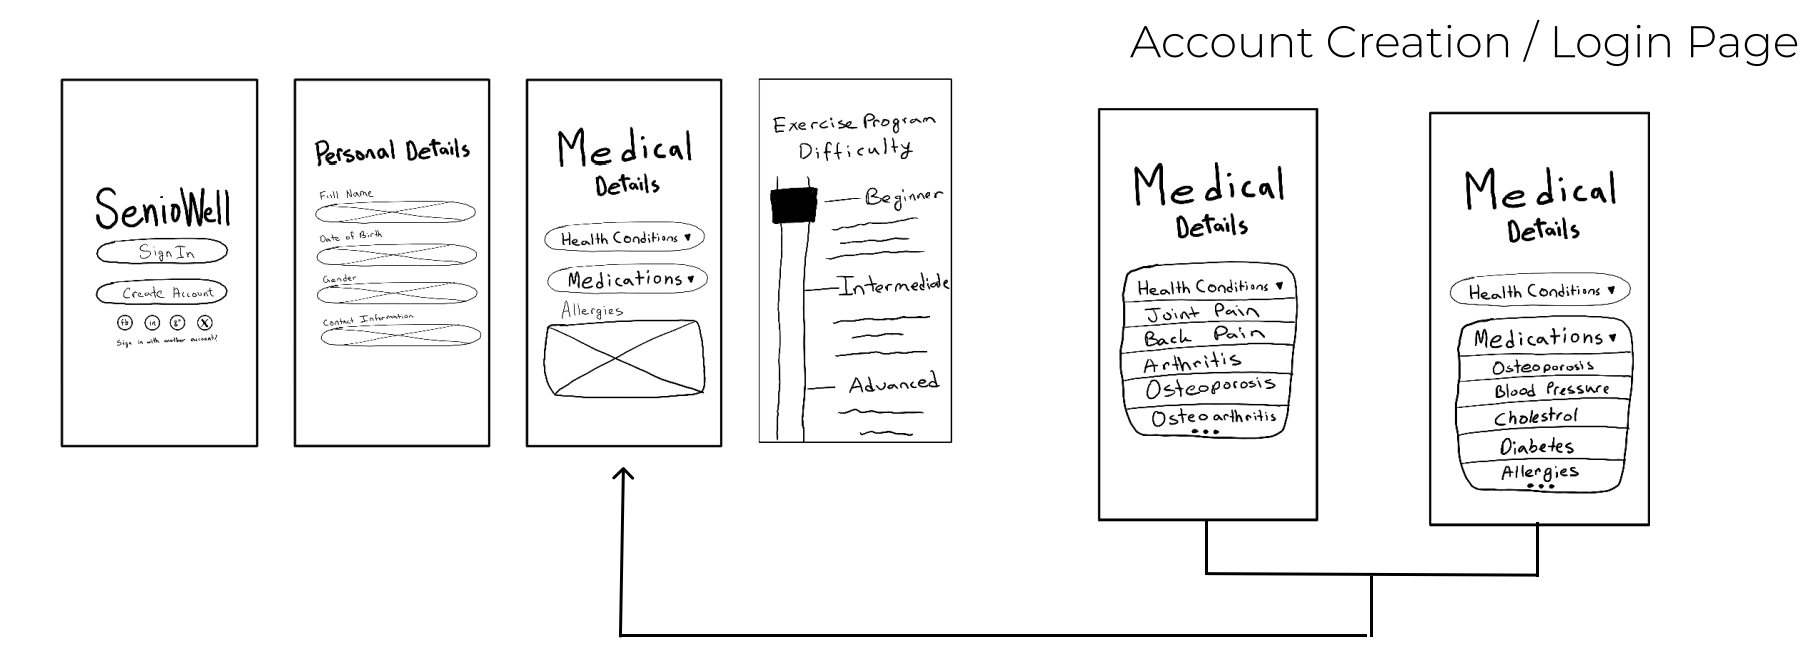 Account Creation / Login Page
SenioWell
Sign In
Create Account
fb
in
g+
X
Sign in with another account?
Personal Details
Full Name
Date of Birth
Gender
Contact Information
Medical
Details
Health Conditions ▼
Medications ▼
Allergies
Exercise Program
Difficulty
Beginner
Intermediate
Advanced
Medical
Details
Health Conditions ▼
Joint Pain
Back Pain
Arthritis
Osteoporosis
Osteoarthritis
...
Medical
Details
Health Conditions ▼
Medications ▼
Osteoporosis
Blood Pressure
Cholestrol
Diabetes
Allergies
...